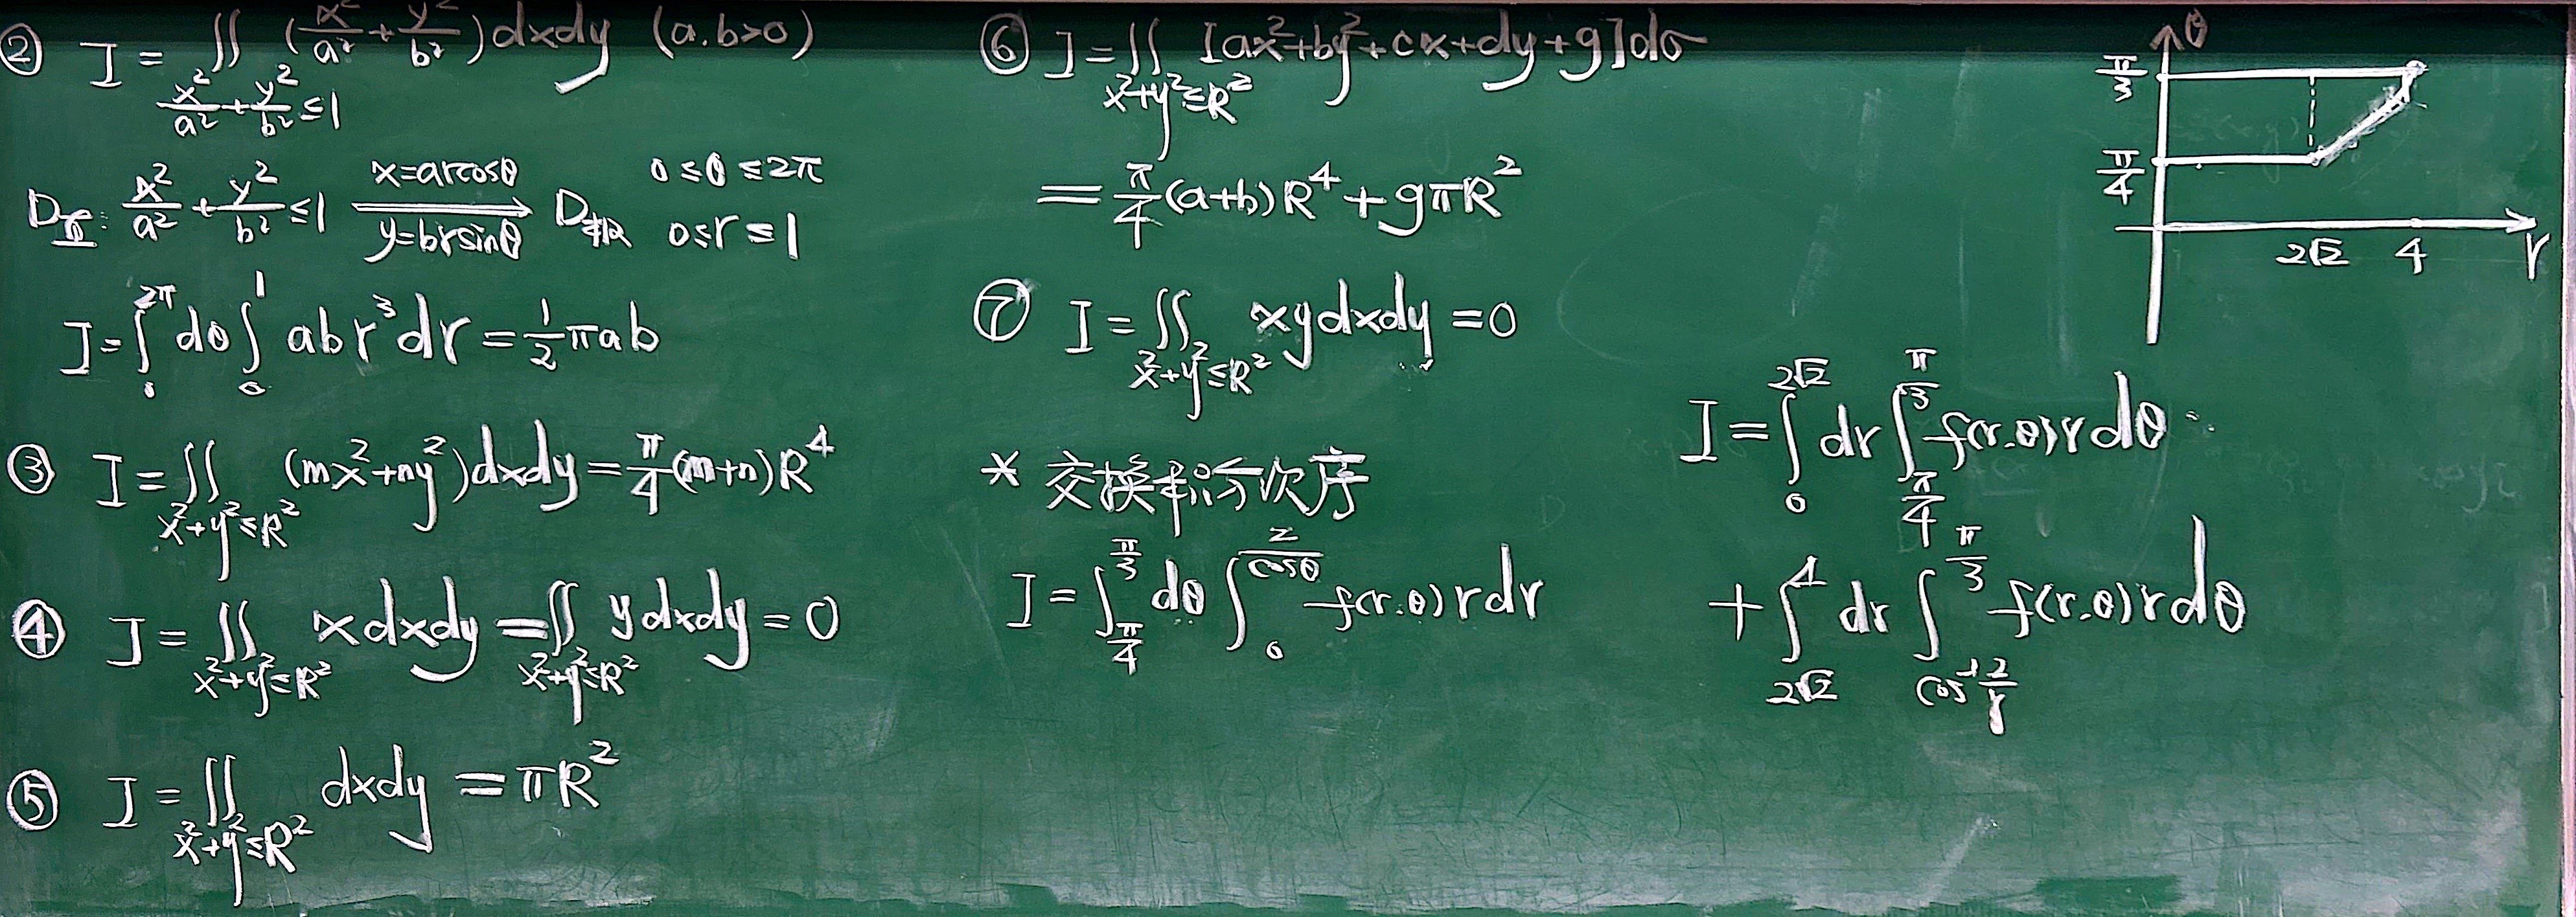 ② I = ∬_{x²/a²+y²/b²≤1} (x²/a²+y²/b²)dxdy (a.b>0)
D_直: x²/a²+y²/b²≤1 x=arcosθ y=brsinθ D_极 0≤θ≤2π 0≤r≤1
I=∫_0^{2π}dθ∫_0^1 abr³dr=1/2πab
③ I=∬_{x²+y²≤R²} (mx²+ny²)dxdy=π/4(m+n)R⁴
④ I=∬_{x²+y²≤R²} xdxdy=∬_{x²+y²≤R²} ydxdy=0
⑤ I=∬_{x²+y²≤R²} dxdy=πR²
⑥ I=∬_{x²+y²≤R²} [ax²+by²+cx+dy+g]dσ
=π/4(a+b)R⁴+gπR²
⑦ I=∬_{x²+y²≤R²} xydxdy=0
* 交换积分次序
I=∫_{π/4}^{π/3}dθ∫_0^{2/cosθ} f(r.θ)rdr
θ
π/3
π/4
2√2 4 r
I=∫_0^{2√2}dr∫_{π/4}^{π/3}f(r.θ)rdθ
+∫_{2√2}^4 dr∫_{cos⁻¹2/r}^{π/3}f(r.θ)rdθ